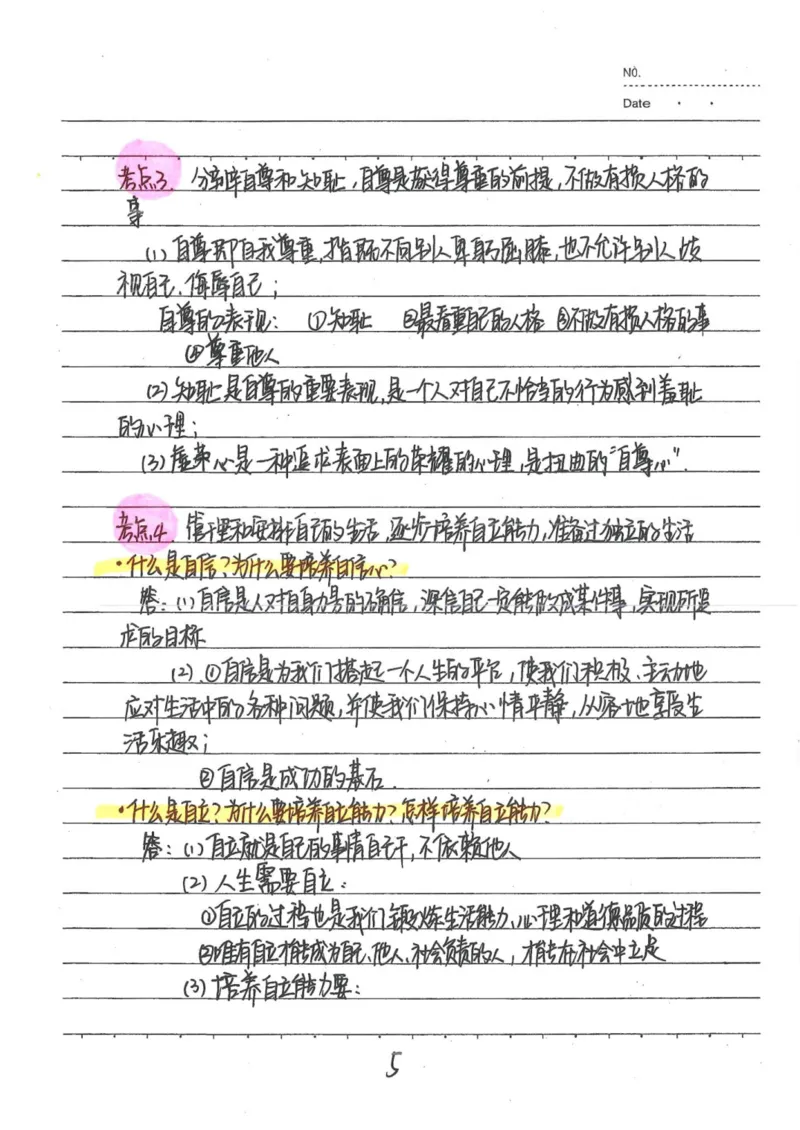 No.
Date
考点3. 分辨自尊和知耻,自尊是获得尊重的前提,不做有损人格的
事
(1) 自尊即自我尊重,指既不向别人卑躬屈膝,也不允许别人歧
视自己、侮辱自己;
自尊的表现: ①知耻 ②最看重自己的人格 ③不做有损人格的事
④尊重他人
(2) 知耻是自尊的重要表现,是一个人对自己不恰当的行为感到羞耻
的心理;
(3) 虚荣心是一种追求表面上的荣耀的心理,是扭曲的“自尊心”.
考点4. 管理和安排自己的生活,逐步培养自立能力,准备过独立的生活
·什么是自信?为什么要培养自信心?
答:(1) 自信是人对自身力量的确信,深信自己一定能做成某件事,实现所追
求的目标
(2). ①自信是为我们搭起一个人生的平台,使我们积极、主动地
应对生活中的各种问题,并使我们保持心情平静,从容地享受生
活乐趣;
②自信是成功的基石.
·什么是自立?为什么要培养自立能力?怎样培养自立能力?
答:(1) 自立就是自己的事情自己干,不依赖他人
(2) 人生需要自立:
①自立的过程也是我们锻炼生活能力、心理和道德品质的过程
②唯有自立才能成为自己、他人、社会负责的人,才能在社会中立足
(3) 培养自立能力要:
5